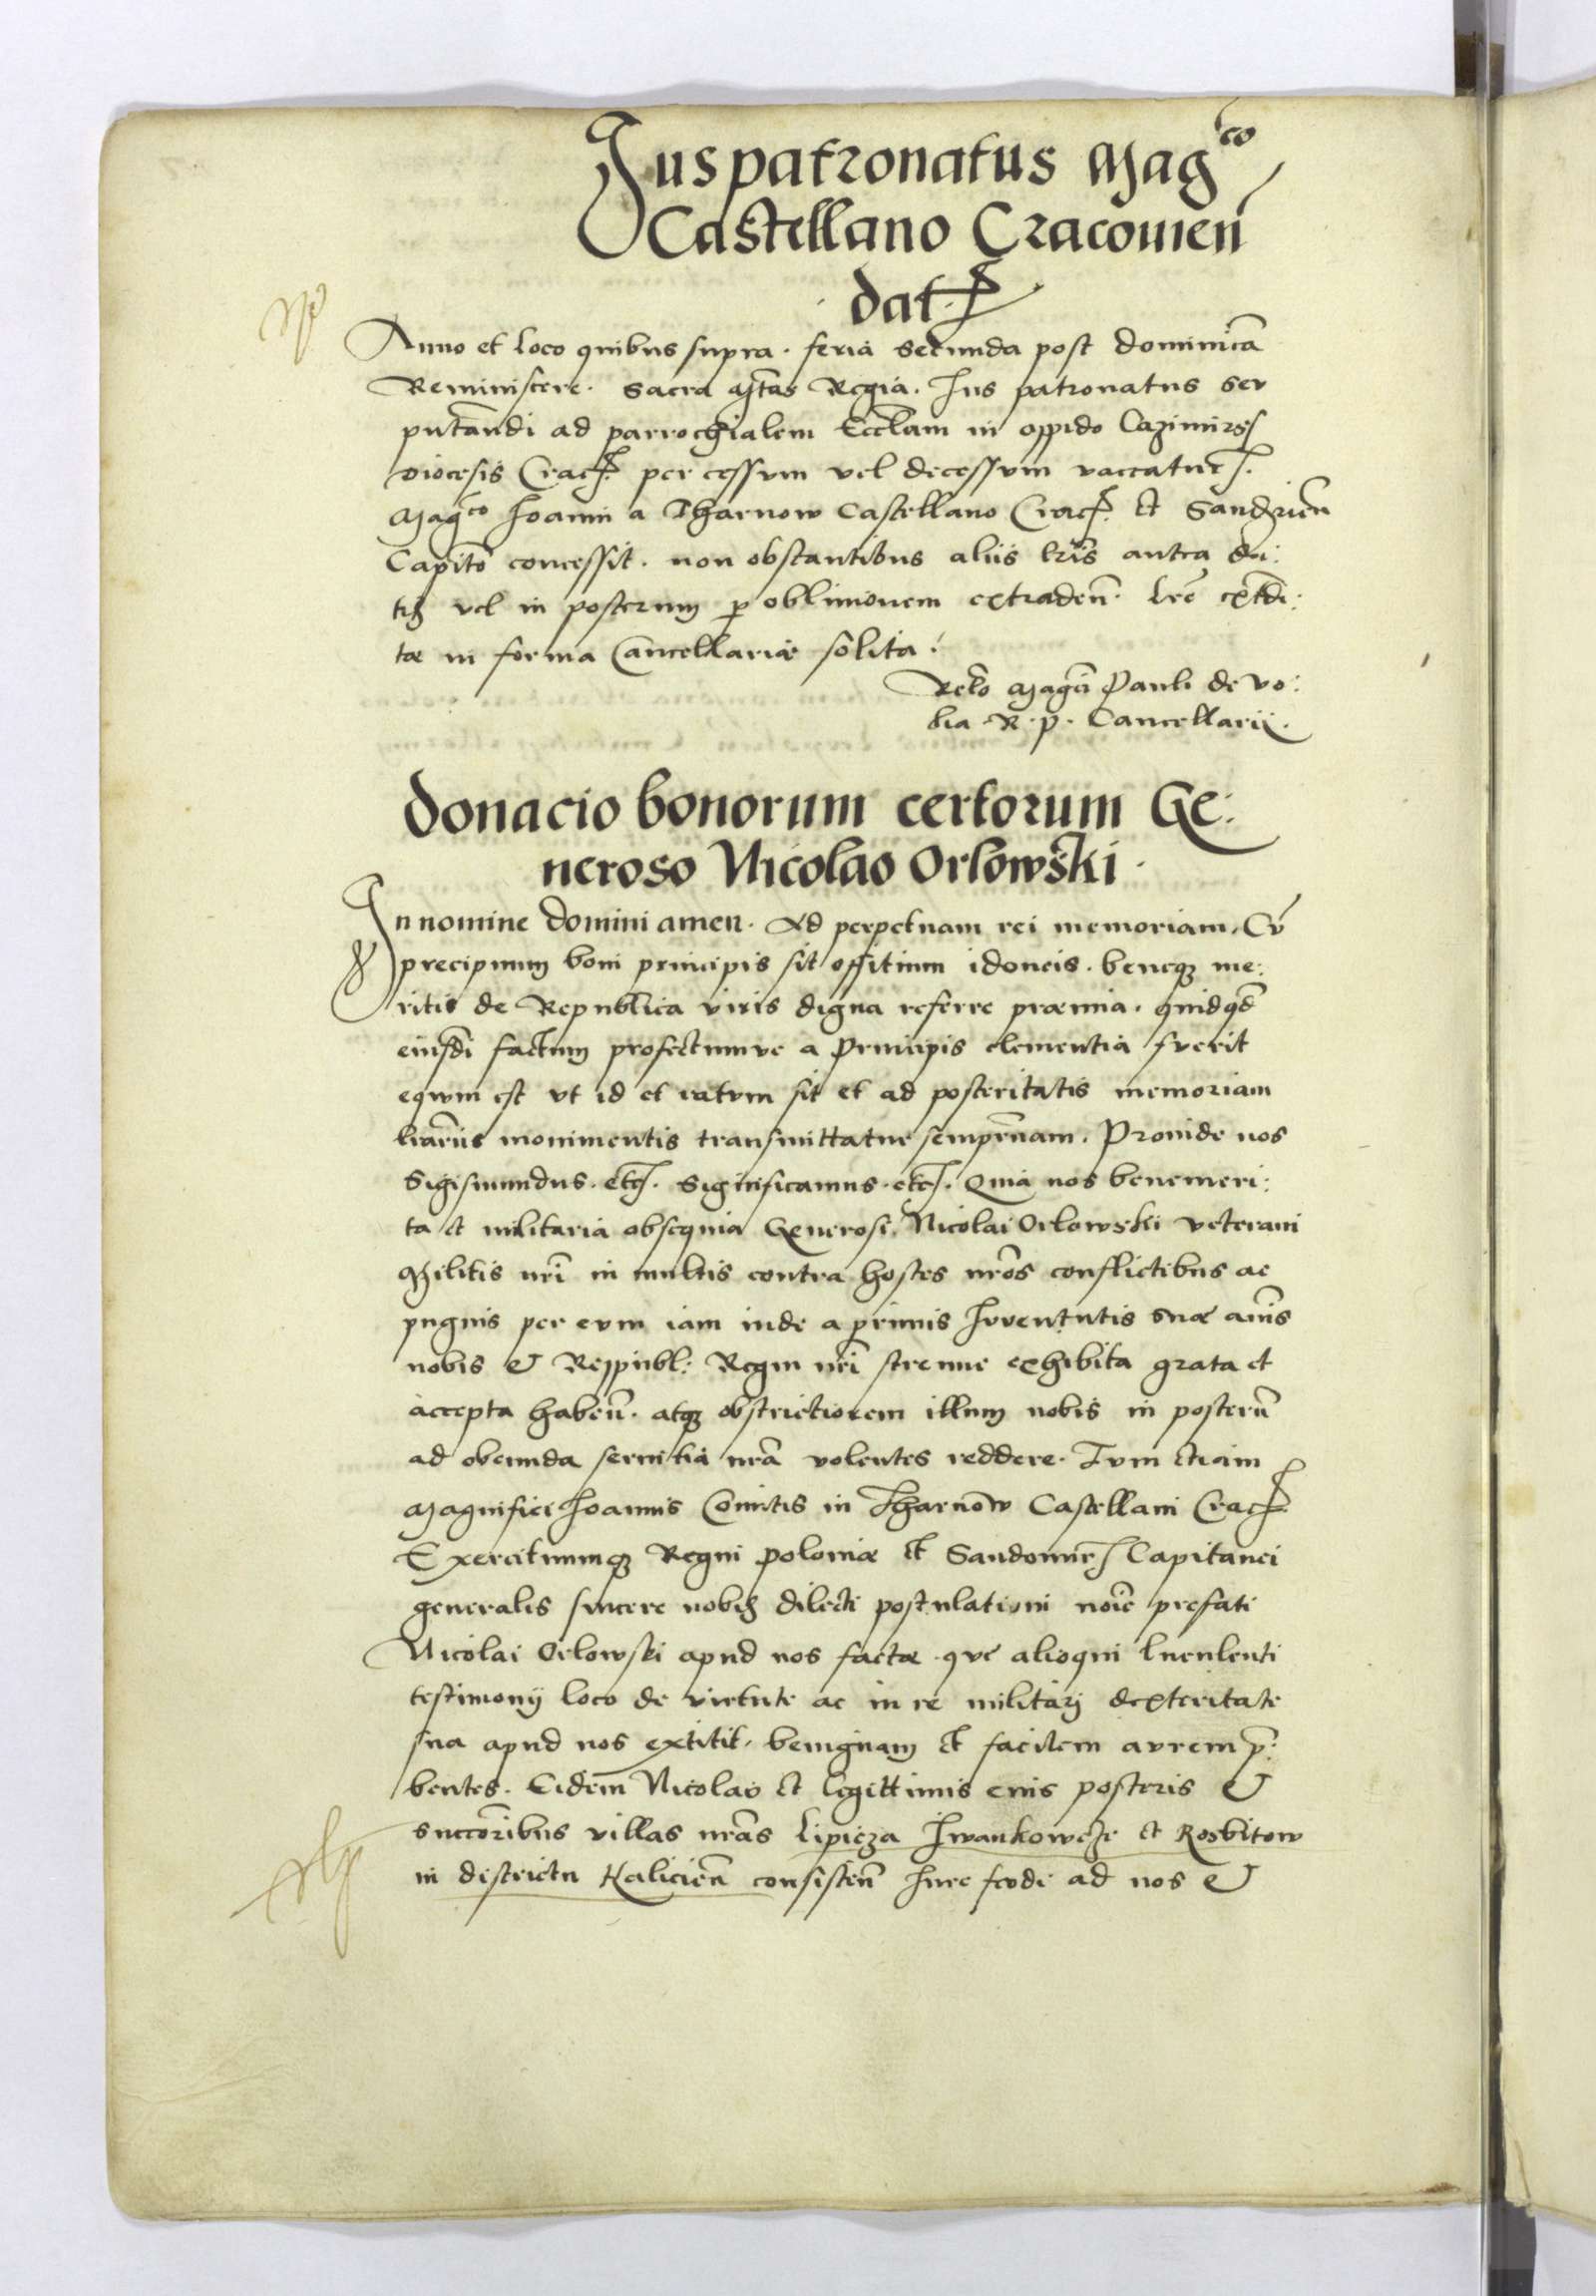 Jus patronatus Mag^co
Castellano Cracouien̄
dat(ur)
Anno et loco quibus supra. feria Secunda post dominicā
Reminiscere. Sacra Mtas Regia. Jus patronatus seu
pn̄tandi ad parrochialem Eccl̄am in oppido Cazimirs
diocesis Crac. per cessum vel decessum vaccatur.
Mag^co Joanni a Tharnow Castellano Crac. et Sandzien̄
Capit̄o concessit. non obstantibus aliis l̄ris antea da:
tis vel in posterum p oblivionem extraden̄. l̄re extdi:
tæ in forma Cancellariæ solita.
Rel̄o Magci Pauli de Vo:
lia. R. p. Cancellarij.
Donacio bonorum certorum Ge:
neroso Nicolao Orlowski.
In nomine Domini amen. Ad perpetuam rei memoriam. Cū
precipuum boni principis sit offitium idoneis. beneq; me:
ritis de Republica viris digna referre præmia. quidqd̄
eiusdi factum profectumve a Principis clementia fuerit
equum est vt id et ratum sit et ad posteritatis memoriam
l̄rariis monimentis transmittatur sempr̄nam. Proinde nos
Sigismundus. etc. Significamus. etc. Quia nos benemeri:
ta et militaria obsequia Generosi Nicolai Orlowski veterani
Militis nr̄i in multis contra hostes nr̄os conflictibus ac
pugnis per eum iam inde a primis Juventutis suæ annis
nobis et Reipubl: Regni nr̄i strenue exhibita grata et
accepta haben̄. atq; obstrictiorem illum nobis in posterū
ad obeunda servitia nr̄a volentes reddere. Tum etiam
Magnifici Joannis Comitis in Tharnow Castellani Crac.
Exercituumq; Regni poloniæ et Sandomir. Capitanei
generalis sincere nobis dilecti postulationi noīe prefati
Nicolai Orlowski apud nos factæ. que alioqui luculenti
testimonij loco de virtute ac in re militarj dexteritate
sua apud nos extitit. benignam et facilem aurem p̄:
bentes. Eidem Nicolao et legittimis eius posteris et
succōribus villas nr̄as Lipicza Jwankowcze et Rosbitow
in districtu Halicien̄ consisten̄ Jure feodi ad nos et